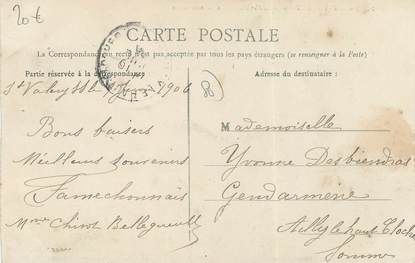 20€
CARTE POSTALE
La Correspondance au recto n'est pas acceptée par tous les pays étrangers (se renseigner à la Poste)
Partie réservée à la correspondance
Adresse du destinataire :
St Valery 1906
Bons baisers
Meilleurs souvenirs
Famechonnais
Mme Chivot Bellegueulle
Mademoiselle
Yvonne Desbiendras
Gendarmerie
Ailly le haut Clocher
Somme